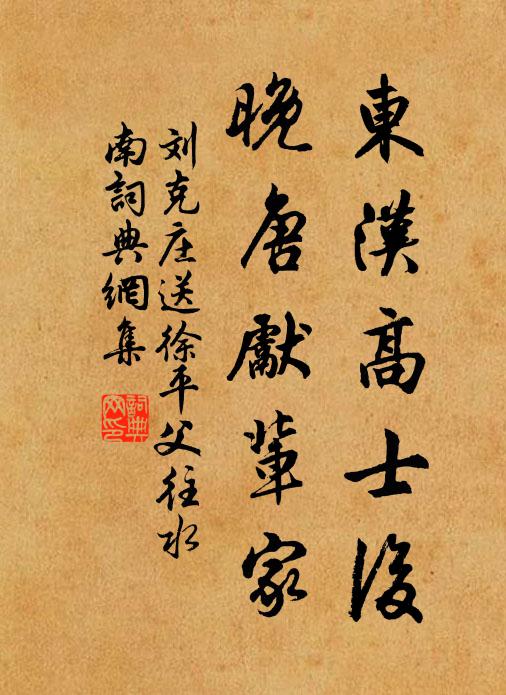 東漢高士後
晚唐獻輩家
刘克庄送徐平父往水
南詞典網集
詞典
网印